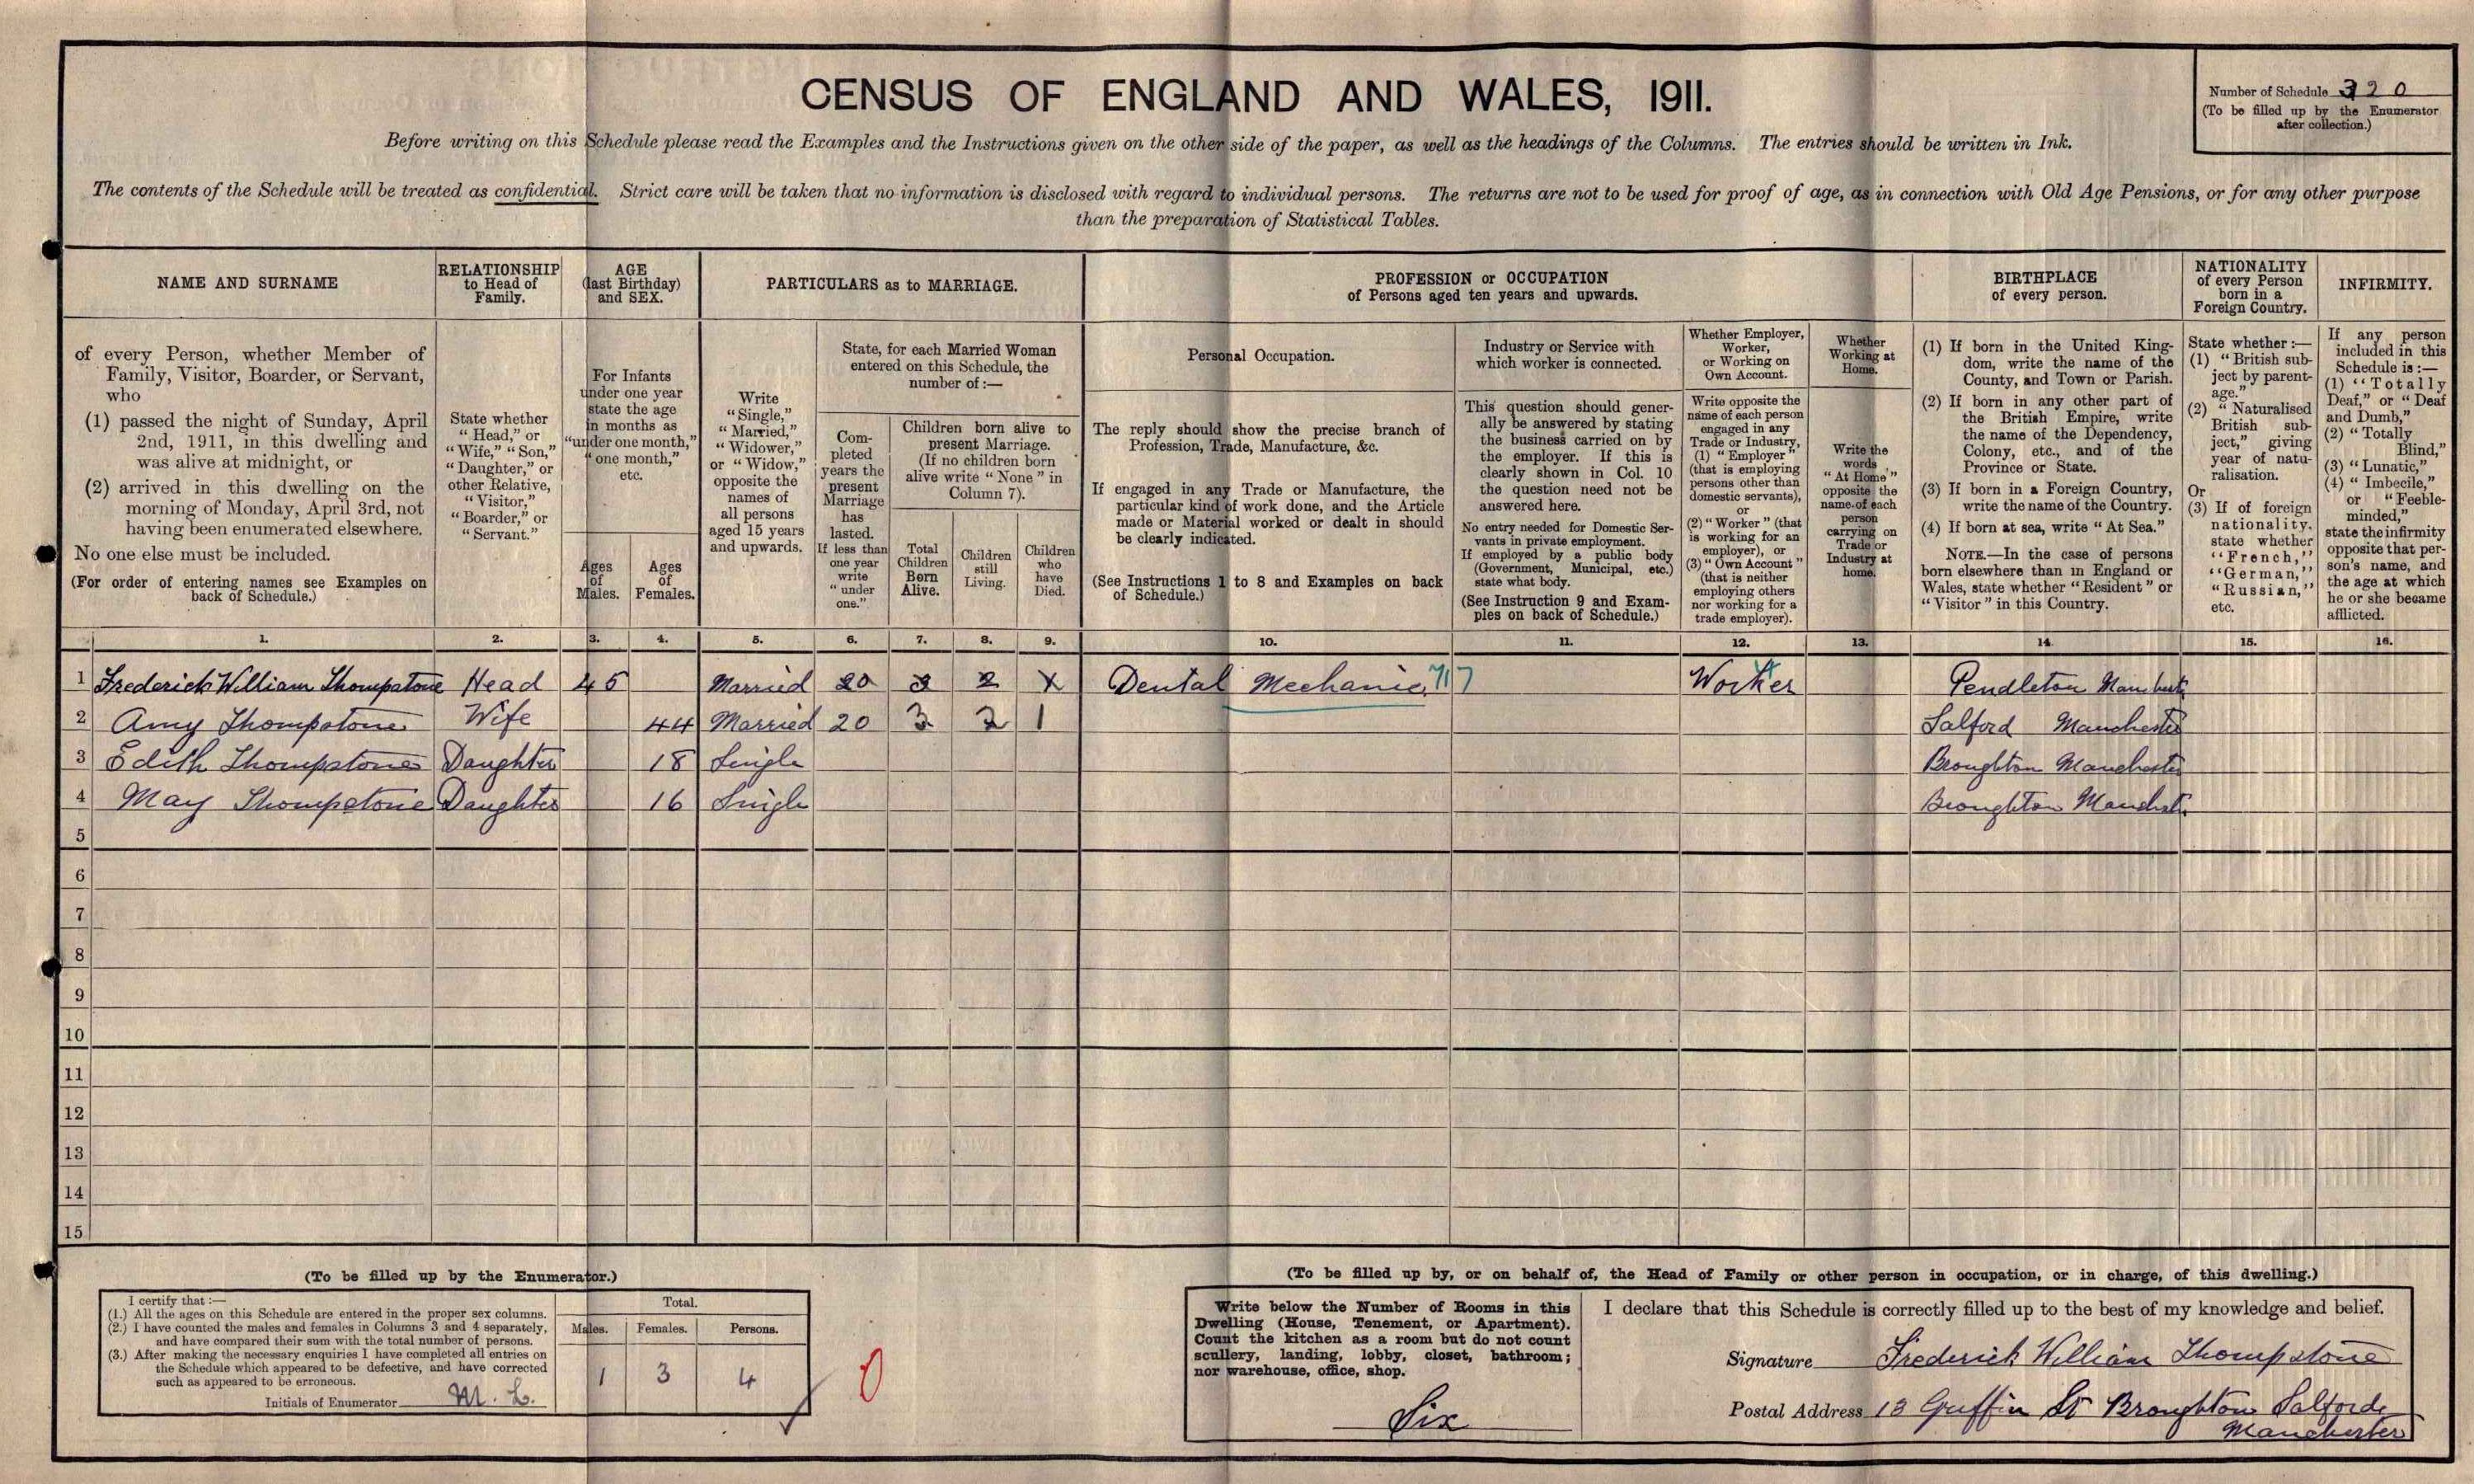 CENSUS OF ENGLAND AND WALES, 1911.
Number of Schedule 320
(To be filled up by the Enumerator
after collection.)
Before writing on this Schedule please read the Examples and the Instructions given on the other side of the paper, as well as the headings of the Columns. The entries should be written in Ink.
The contents of the Schedule will be treated as confidential. Strict care will be taken that no information is disclosed with regard to individual persons. The returns are not to be used for proof of age, as in connection with Old Age Pensions, or for any other purpose
than the preparation of Statistical Tables.
NAME AND SURNAME
of every Person, whether Member of
Family, Visitor, Boarder, or Servant,
who
(1) passed the night of Sunday, April
2nd, 1911, in this dwelling and
was alive at midnight, or
(2) arrived in this dwelling on the
morning of Monday, April 3rd, not
having been enumerated elsewhere.
No one else must be included.
(For order of entering names see Examples on
back of Schedule.)
1.
RELATIONSHIP
to Head of
Family.
State whether
"Head," or
"Wife," "Son,"
"Daughter," or
other Relative,
"Visitor,"
"Boarder," or
"Servant."
2.
AGE
(last Birthday)
and SEX.
For Infants
under one year
state the age
in months as
"under one month,"
"one month,"
etc.
Ages
of
Males.
3.
Ages
of
Females.
4.
PARTICULARS as to MARRIAGE.
Write
"Single,"
"Married,"
"Widower,"
or "Widow,"
opposite the
names of
all persons
aged 15 years
and upwards.
5.
State, for each Married Woman
entered on this Schedule, the
number of :—
Com-
pleted
years the
present
Marriage
has
lasted.
If less than
one year
write
"under
one."
6.
Children born alive to
present Marriage.
(If no children born
alive write "None" in
Column 7).
Total
Children
Born
Alive.
7.
Children
still
Living.
8.
Children
who
have
Died.
9.
PROFESSION or OCCUPATION
of Persons aged ten years and upwards.
Personal Occupation.
The reply should show the precise branch of
Profession, Trade, Manufacture, &c.
If engaged in any Trade or Manufacture, the
particular kind of work done, and the Article
made or Material worked or dealt in should
be clearly indicated.
(See Instructions 1 to 8 and Examples on back
of Schedule.)
10.
Industry or Service with
which worker is connected.
This question should gener-
ally be answered by stating
the business carried on by
the employer. If this is
clearly shown in Col. 10
the question need not be
answered here.
No entry needed for Domestic Ser-
vants in private employment.
If employed by a public body
(Government, Municipal, etc.)
state what body.
(See Instruction 9 and Exam-
ples on back of Schedule.)
11.
Whether Employer,
Worker,
or Working on
Own Account.
Write opposite the
name of each person
engaged in any
Trade or Industry,
(1) "Employer"
(that is employing
persons other than
domestic servants),
or
(2) "Worker" (that
is working for an
employer), or
(3) "Own Account"
(that is neither
employing others
nor working for a
trade employer).
12.
Whether
Working at
Home.
Write the
words
"At Home"
opposite the
name of each
person
carrying on
Trade or
Industry at
home.
13.
BIRTHPLACE
of every person.
(1) If born in the United King-
dom, write the name of the
County, and Town or Parish.
(2) If born in any other part of
the British Empire, write
the name of the Dependency,
Colony, etc., and of the
Province or State.
(3) If born in a Foreign Country,
write the name of the Country.
(4) If born at sea, write "At Sea."
NOTE.—In the case of persons
born elsewhere than in England or
Wales, state whether "Resident" or
"Visitor" in this Country.
14.
NATIONALITY
of every Person
born in a
Foreign Country.
State whether :—
(1) "British sub-
ject by parent-
age."
(2) "Naturalised
British sub-
ject," giving
year of natu-
ralisation.
Or
(3) If of foreign
nationality,
state whether
"French,"
"German,"
"Russian,"
etc.
15.
INFIRMITY.
If any person
included in this
Schedule is :—
(1) "Totally
Deaf," or "Deaf
and Dumb,"
(2) "Totally
Blind,"
(3) "Lunatic,"
(4) "Imbecile,"
or "Feeble-
minded,"
state the infirmity
opposite that per-
son's name, and
the age at which
he or she became
afflicted.
16.
1 Frederick William Thompstone Head 45 Married 20 3 2 X Dental Mechanic 717 Worker Pendleton Manchester
2 Amy Thompstone Wife 44 Married 20 3 2 1 Salford Manchester
3 Edith Thompstone Daughter 18 Single Broughton Manchester
4 May Thompstone Daughter 16 Single Broughton Manchester
5
6
7
8
9
10
11
12
13
14
15
(To be filled up by the Enumerator.)
I certify that :—
(1.) All the ages on this Schedule are entered in the proper sex columns.
(2.) I have counted the males and females in Columns 3 and 4 separately,
and have compared their sum with the total number of persons.
(3.) After making the necessary enquiries I have completed all entries on
the Schedule which appeared to be defective, and have corrected
such as appeared to be erroneous.
Initials of Enumerator
Total.
Males. Females. Persons.
1 3 4
0
(To be filled up by, or on behalf of, the Head of Family or other person in occupation, or in charge, of this dwelling.)
Write below the Number of Rooms in this
Dwelling (House, Tenement, or Apartment).
Count the kitchen as a room but do not count
scullery, landing, lobby, closet, bathroom;
nor warehouse, office, shop.
Six
I declare that this Schedule is correctly filled up to the best of my knowledge and belief.
Signature Frederick William Thompstone
Postal Address 13 Griffin St Broughton Salford
Manchester